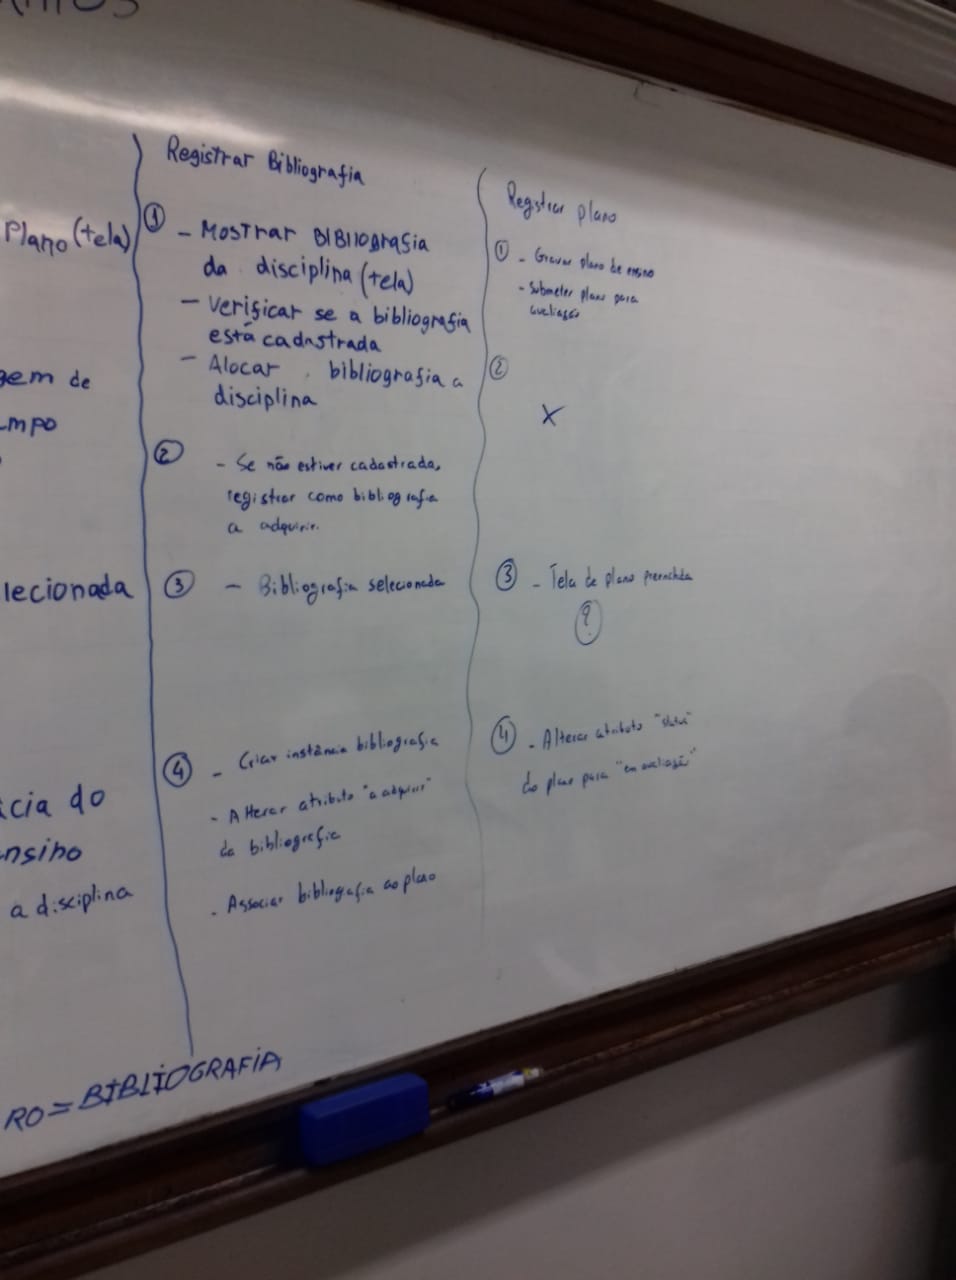 Plano (tela)
gem de
empo
lecionada
ncia do
ensino
a disciplina
RO = BIBLIOGRAFIA
Registrar Bibliografia
① - Mostrar Bibliografia
da disciplina (tela)
- Verificar se a bibliografia
está cadastrada
- Alocar bibliografia a
disciplina
② - Se não estiver cadastrada,
registrar como bibliografia
a adquirir.
③ - Bibliografia selecionada
④ - Criar instância bibliografia
- Alterar atributo "a adquirir"
da bibliografia
- Associar bibliografia ao plano
Registrar plano
① - Gravar plano de ensino
- Submeter plano para
avaliação
②
X
③ - Tela de plano preenchida
?
④ - Alterar atributo "status"
do plano para "em avaliação"